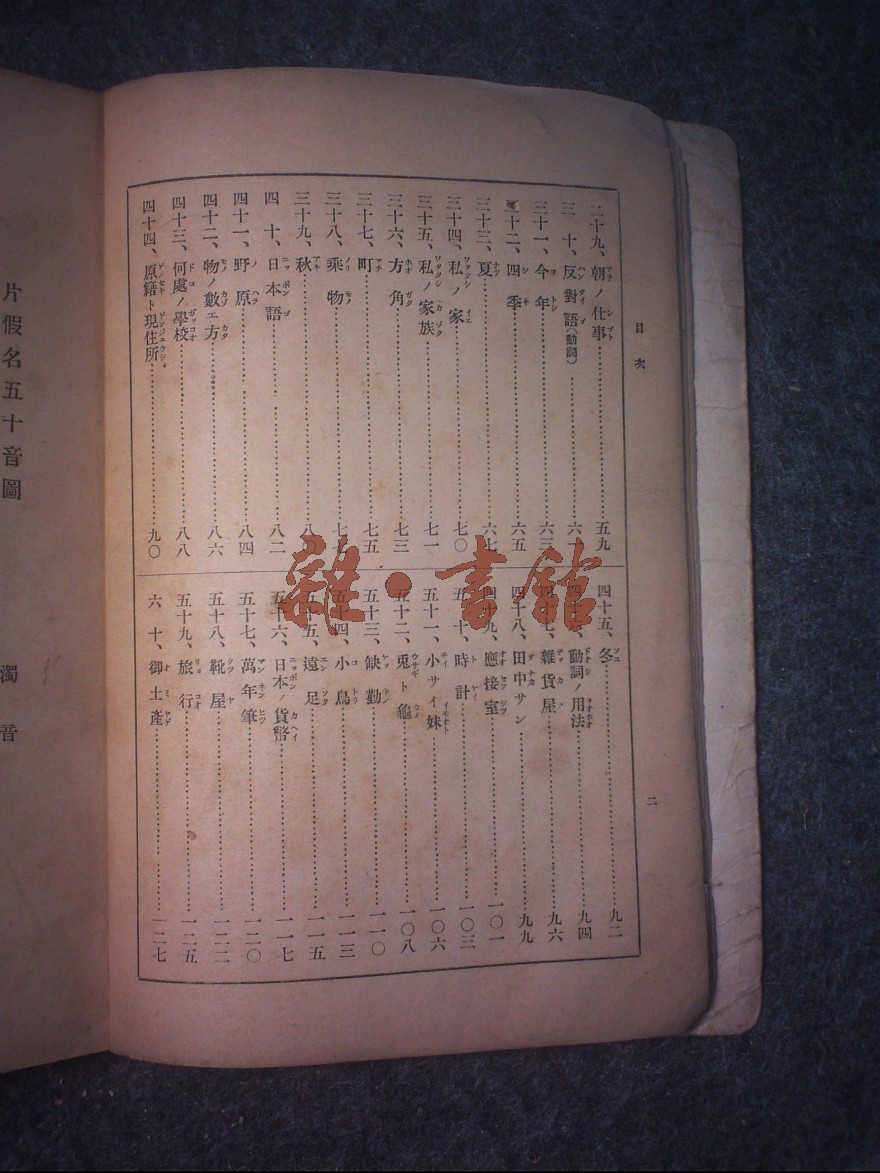 目次
二十九、朝ノ仕事……五九
三十、反對語(動詞)……六一
三十一、今年……六三
三十二、四季……六五
三十三、夏……六七
三十四、私ノ家……七〇
三十五、私ノ家族……七一
三十六、方角……七三
三十七、町……七五
三十八、乘物……七七
三十九、秋……八〇
四十、日本語……八二
四十一、野原……八四
四十二、物ノ數エ方……八六
四十三、何處ノ學校……八八
四十四、原籍ト現住所……九〇
四十五、冬……九二
四十六、動詞ノ用法……九四
四十七、雜貨屋……九六
四十八、田中サン……九九
四十九、應接室……一〇一
五十、時計……一〇三
五十一、小サイ妹……一〇六
五十二、兎ト龜……一〇八
五十三、缺勤……一一〇
五十四、小鳥……一一三
五十五、遠足……一一五
五十六、日本ノ貨幣……一一七
五十七、萬年筆……一二〇
五十八、靴屋……一二二
五十九、旅行……一二五
六十、御土產……一二七
二
片假名五十音圖
濁音
雜·書館